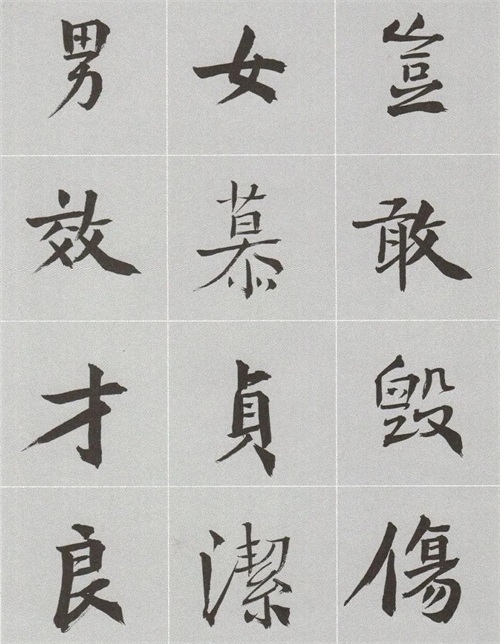 豈敢毀傷
女慕貞潔
男效才良